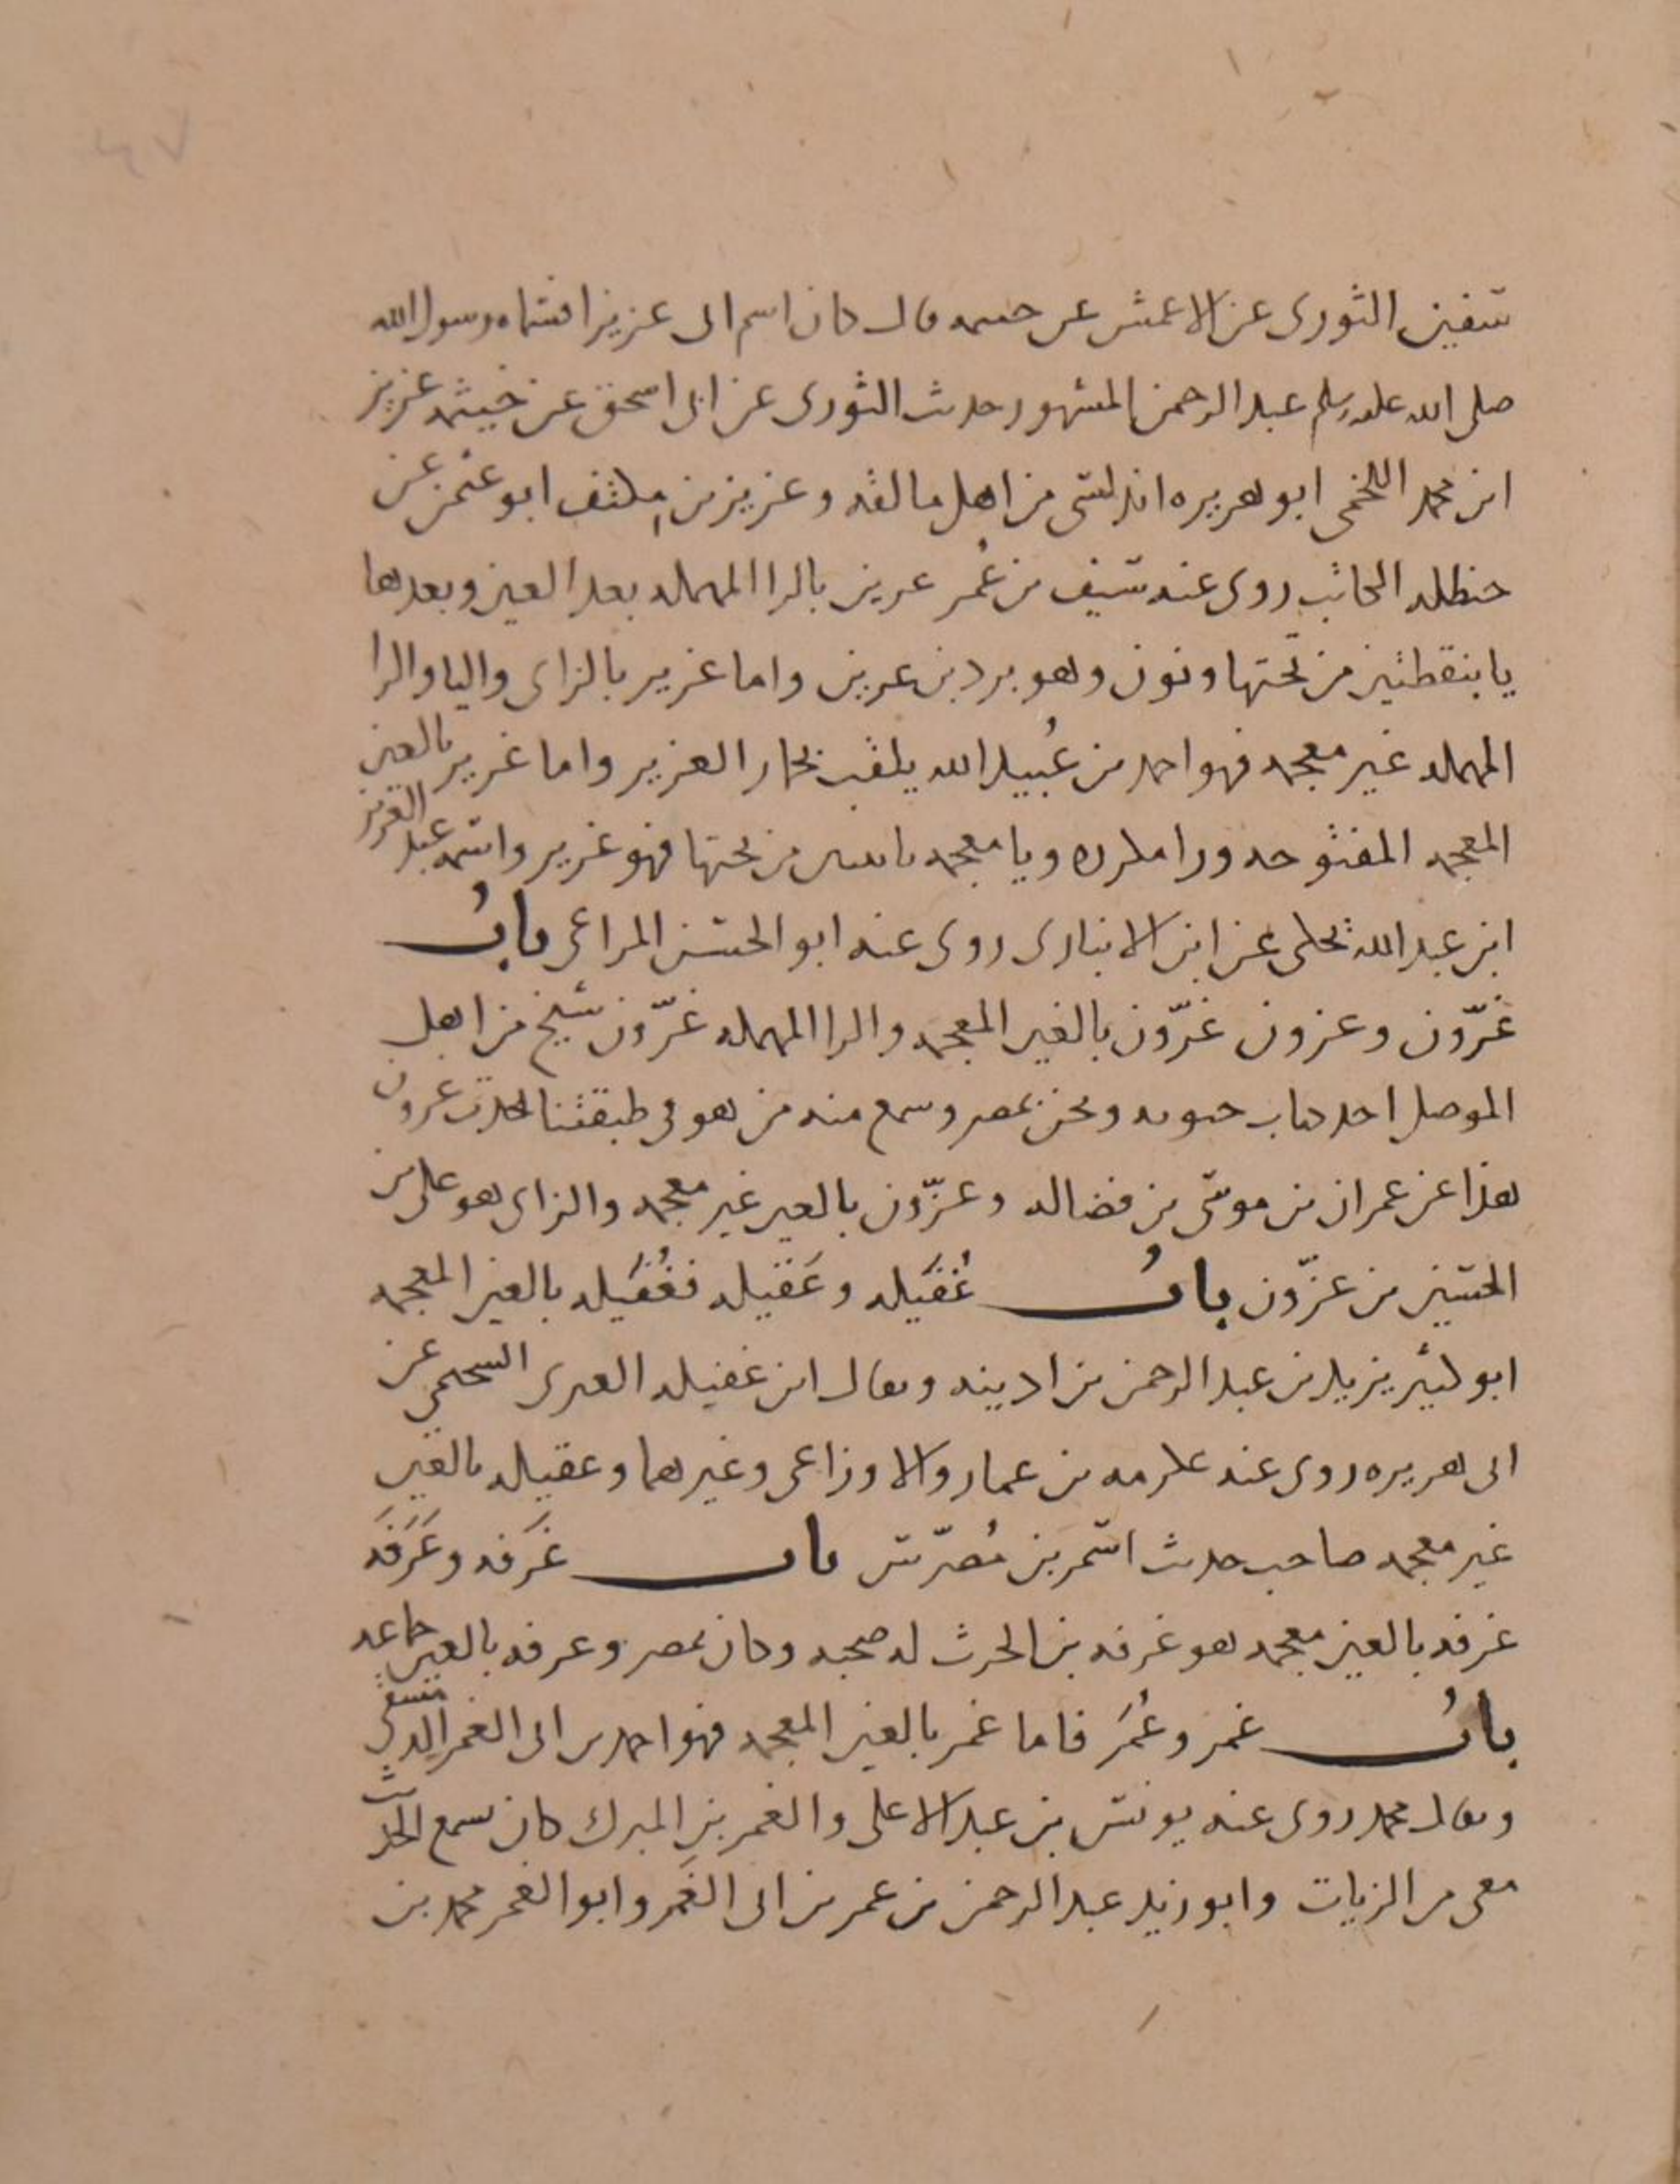 ٤٧
سفين الثورى عن الاعمش عن خيثمه قال كان اسم ابى عزيزا فسماه رسول الله
صلى الله عليه وسلم عبد الرحمن المشهور حديث الثورى عن ابى اسحق عن خيثمه عزيز
ابن محمد اللخمى ابو هريره اندلسى من اهل مالقه وعزيز بن مكنف ابو عثمن عن
حنظله الكاتب روى عنه سيف بن عُمر عرين بالرا المهمله بعد العين وبعدها
يا بنقطتين من تحتها ونون وهو برد بن عرين واما عزير بالزاى واليا والرا
المهمله غير معجمه فهو احمد بن عُبيد الله يلقب بحمار العزير واما غرير بالغين
المعجمه المفتوحه ورا مكرره ويا معجمه باثنين من تحتها فهو غرير واسمه عبد العزيز
ابن عبد الله يحكى عن ابن الانبارى روى عنه ابو الحسن المراغى بابُ
غرّون وعزون غرّون بالغين المعجمه والرا المهمله غرّون شيخ من اهل
الموصل احد كتاب ونحن بمصر وسمع منه من هو فى طبقتنا يحدث غرون
هذا عن عمران بن موسى بن فضاله وعزّون بالعين غير معجمه والزاى هو على بن
الحسين بن عزّون بابُ غُفَيله وعَقيله فغُفَيله بالغين المعجمه
ابو كثير يزيد بن عبد الرحمن بن اذينه ويقال ابن غفيله السحيمى عن
ابى هريره روى عنه عكرمه بن عمار والاوزاعى وغيرهما وعقيله بالعين
غير معجمه صاحب حديث اسمر بن مُضرّس باب غَرَفه وعَرَفَه
غرفه بالغين معجمه هو غرفه بن الحرث له صحبه وكان بمصر وعرفه بالعين جماعه
بابُ غمر وعُمَر فاما غمر بالغين المعجمه فهو احمد بن ابى الغمر الدمشقى
ويقال محمد روى عنه يونس بن عبد الاعلى والغمر بن المبرك كان يسمع الحديث
معى من الزيات وابو زيد عبد الرحمن بن عمر بن ابى الغَمر وابو الغمر محمد بن